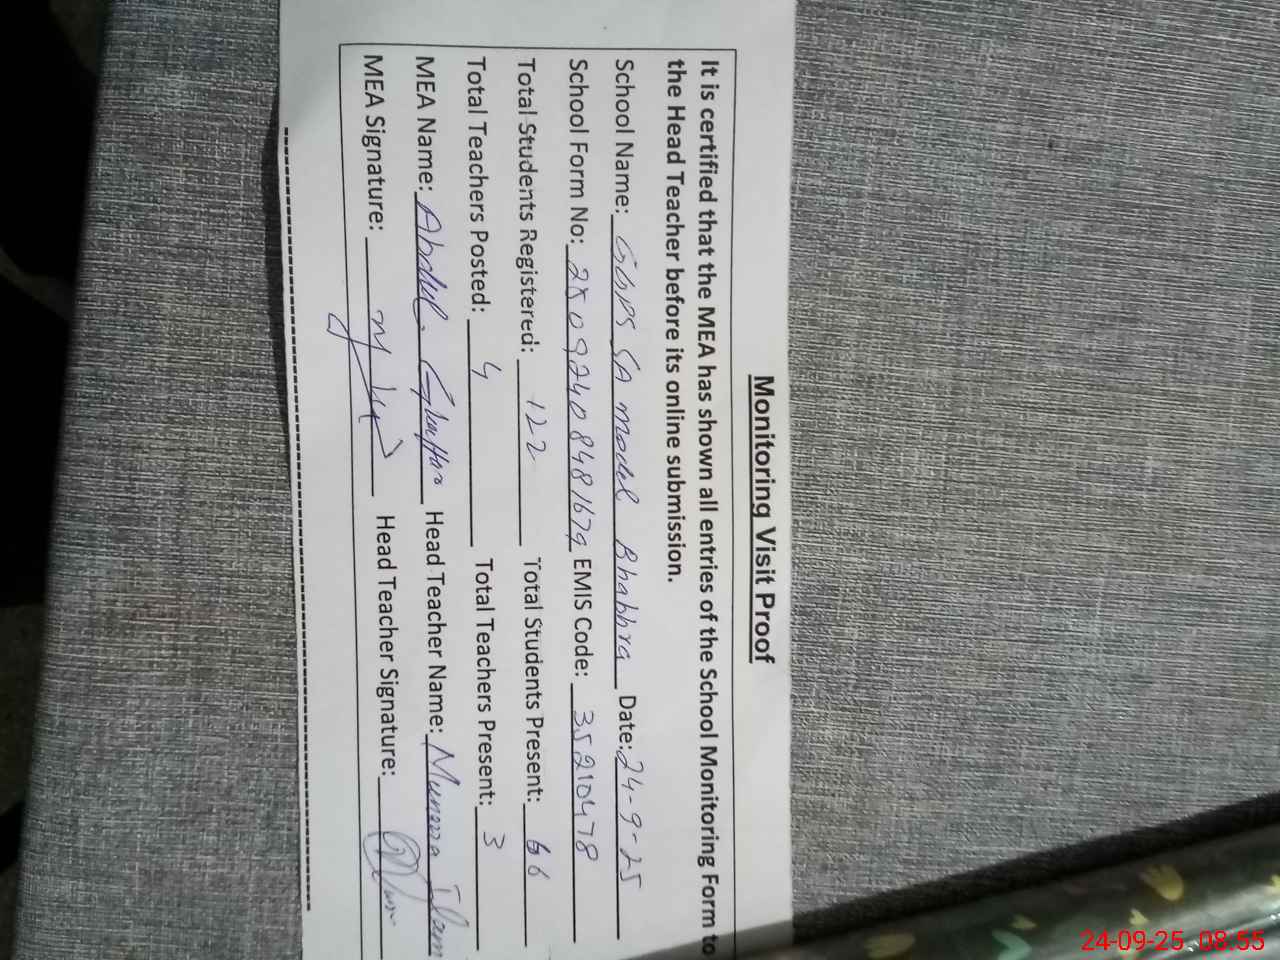 Monitoring Visit Proof
It is certified that the MEA has shown all entries of the School Monitoring Form to
the Head Teacher before its online submission.
School Name: GGPS SA model Bhabhra Date: 24-9-25
School Form No: EMIS Code: 35210478
Total Students Registered: 122 Total Students Present: 66
Total Teachers Posted: 4 Total Teachers Present: 3
MEA Name: Abdul Ghaffar Head Teacher Name: Munaza Islam
MEA Signature: Head Teacher Signature:
24-09-25 08:55